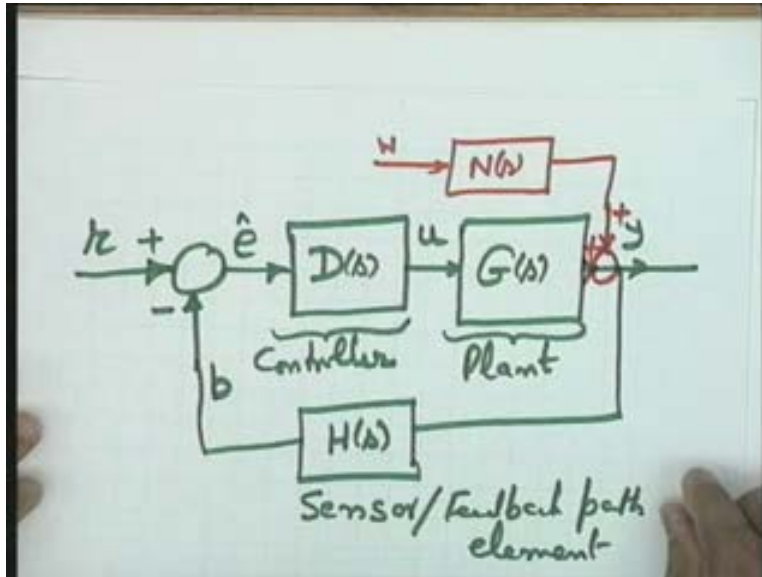 w N(s)
+
r + ê D(s) u G(s) + y
-
Controller Plant
b
H(s)
Sensor/Feedback path
element